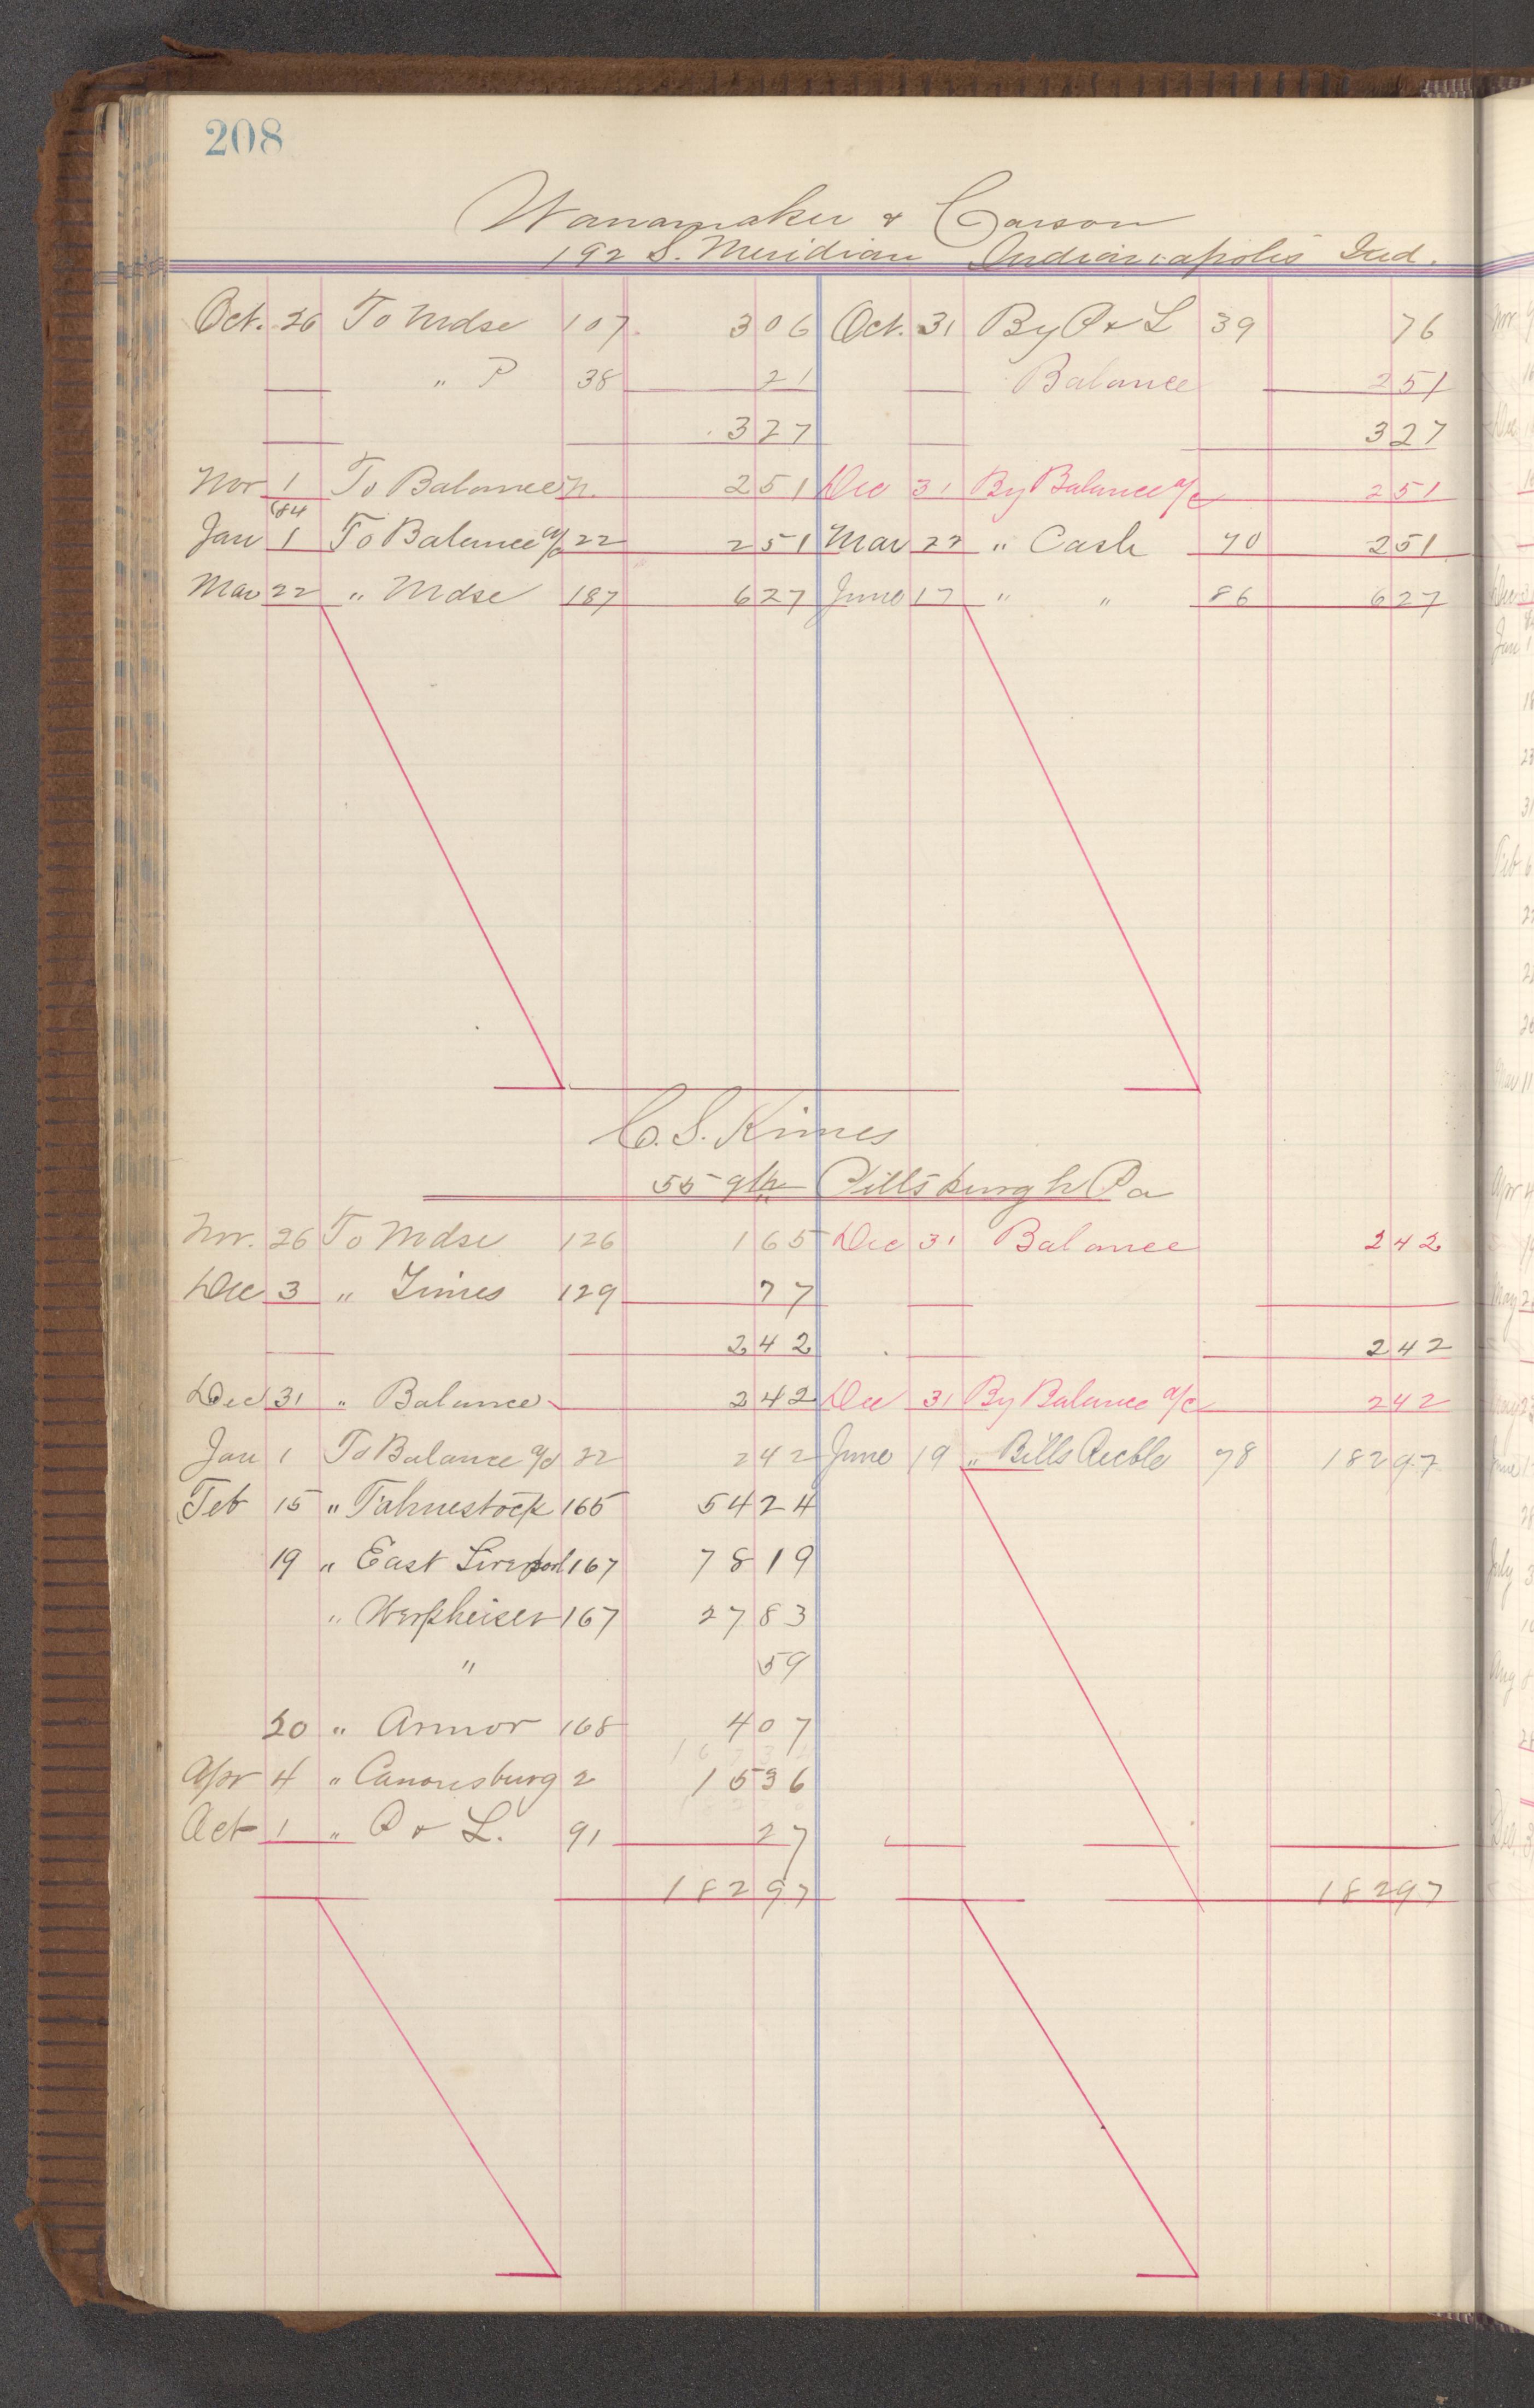 208
Wanamaker & Carson
192 S. Meridian Indianapolis Ind.
Oct. 26 To Mdse 107 306 Oct. 31 By P & L 39 76
" P 38 21 Balance 251
327 327
Nov 1 To Balance 251 Dec 31 By Balance a/c 251
'84
Jan 1 To Balance a/c 22 251 Mar 22 " Cash 70 251
Mar 22 " Mdse 187 627 June 17 " " 86 627
C. S. Kimes
55 9th Pittsburgh Pa
Nov. 26 To Mdse 126 165 Dec 31 Balance 242
Dec 3 " 129 77
242 242
Dec 31 " Balance 242 Dec 31 By Balance a/c 242
Jan 1 To Balance a/c 22 242 June 19 " Bills Recble 78 18297
Feb 15 " Fahnestock 165 5424
19 " East Liverpool 167 7819
" Werkheiser 167 2783
" 59
20 " Armor 168 407
Apr 4 " Canonsburg 2 1536
Oct 1 " P & L. 91 27
18297 18297